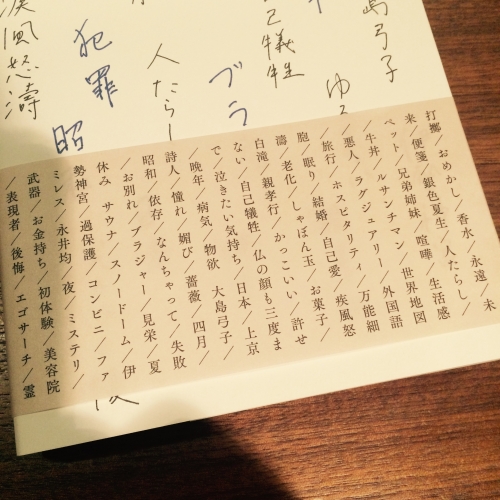 島弓子
ゆ
己犠牲
ブラ
人たらし
犯罪
昭
疾風怒濤
打擲/おめかし/香水/永遠/未
来/便箋/銀色夏生/人たらし/
ペット/兄弟姉妹/喧嘩/生活感
/牛丼/ルサンチマン/世界地図
/悪人/ラグジュアリー/外国語
/旅行/ホスピタリティ/万能細
胞/眠り/結婚/自己愛/疾風怒
濤/老化/しゃぼん玉/お菓子/
白滝/親孝行/かっこいい/許せ
ない/自己犠牲/仏の顔も三度ま
で/泣きたい気持ち/日本/上京
/晩年/病気/物欲/大島弓子/
詩人/憧れ/媚び/薔薇/四月/
昭和/依存/なんちゃって/失敗
/お別れ/ブラジャー/見栄/夏
休み/サウナ/スノードーム/伊
勢神宮/過保護/コンビニ/ファ
ミレス/永井均/夜/ミステリ/
武器/お金持ち/初体験/美容院
/表現者/後悔/エゴサーチ/霊